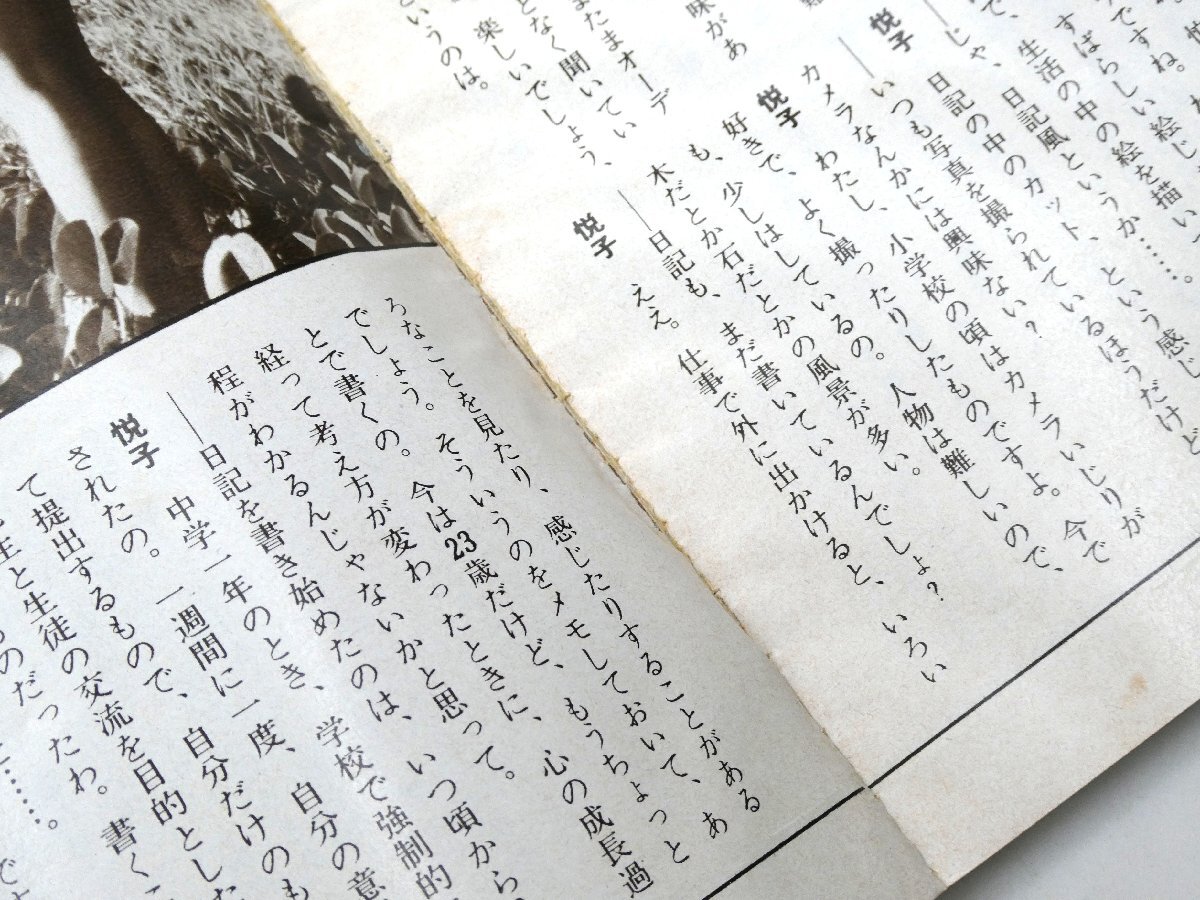 ですね。
すばらしい絵じ
生活の中の絵を描い
日記風というか……。
――じゃ、日記の中のカット、という感じ
で、
悦子
――いつも写真を撮られているほうだけど
カメラなんかには興味ない?
悦子 わたし、小学校の頃はカメラいじりが
好きで、よく撮ったりしたものですよ。今で
も、少しはしているの。人物は難しいので、
木だとか石だとかの風景が多い。
――日記も、まだ書いているんでしょ?
悦子 ええ。仕事で外に出かけると、いろい
味があ
またまオーデ
となく聞いてい
楽しいでしょう、
というのは。
ろなことを見たり、感じたりすることがある
でしょう。そういうのをメモしておいて、あ
とで書くの。今は23歳だけど、もうちょっと
経って考え方が変わったときに、心の成長過
程がわかるんじゃないかと思って。
――日記を書き始めたのは、いつ頃から
悦子 中学一年のとき、学校で強制的
されたの。一週間に一度、自分の意
て提出するもので、自分だけのも
生と生徒の交流を目的とした
のだったわ。書く
……。